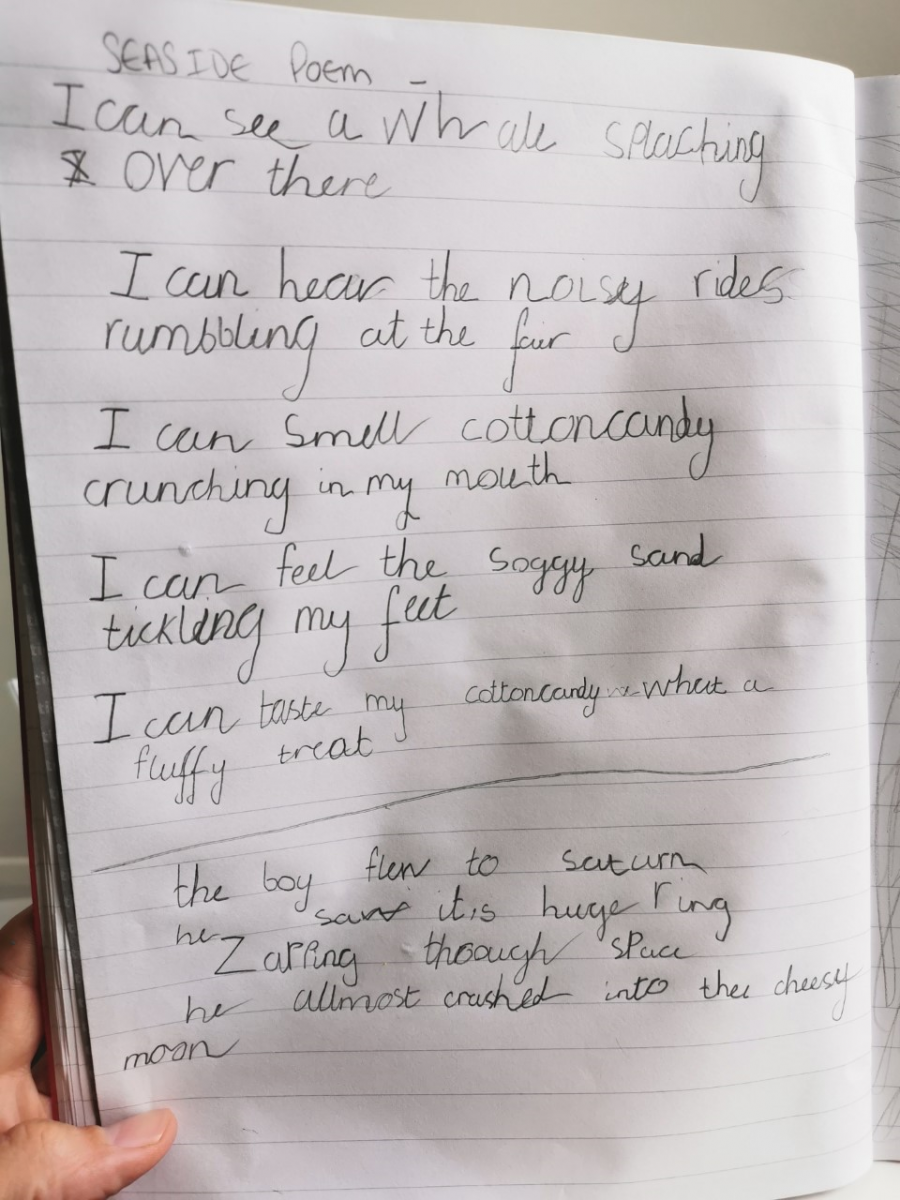 SEASIDE Poem -
I can see a whale splaching
over there
I can hear the noisy rides
rumbbling at the fair
I can smell cottoncandy
crunching in my mouth
I can feel the soggy sand
tickling my feet
I can taste my cottoncandy what a
fluffy treat
the boy flew to saturn
he saw it,s huge ring
Zapping thoough space
he allmost crashed into thee cheesy
moon